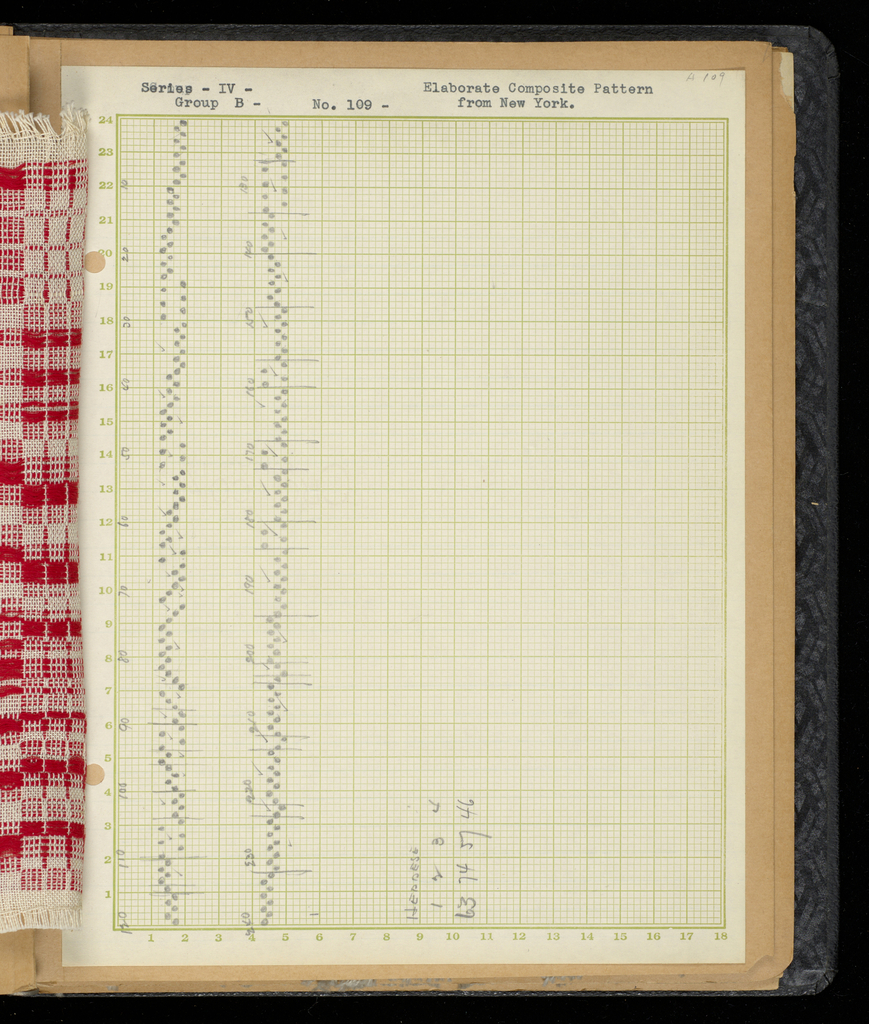 A 109
Series - IV -
Group B -
No. 109 -
Elaborate Composite Pattern
from New York.
24
23
22
21
20
19
18
17
16
15
14
13
12
11
10
9
8
7
6
5
4
3
2
1
1 2 3 4 5 6 7 8 9 10 11 12 13 14 15 16 17 18
10
20
30
40
50
60
70
80
90
100
110
120
130
140
150
160
170
180
190
200
210
220
230
240
HEDDLES
1 2 3 4
63 74 57 46